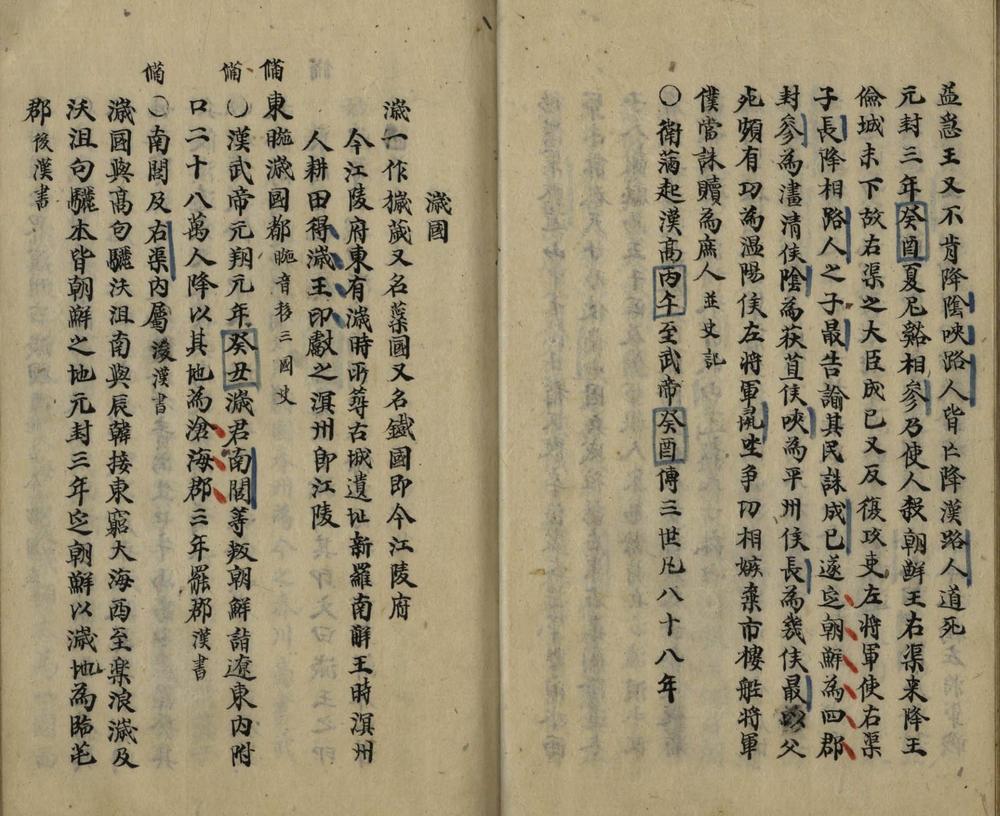 益急王又不肯降陰唊路人皆亡降漢路人道死
元封三年癸酉夏尼谿相參乃使人殺朝鮮王右渠来降王
儉城未下故右渠之大臣成巳又反復攻吏左將軍使右渠
子長降相路人之子最告諭其民誅成巳遂㝎朝鮮為四郡
封參為澅清侯陰為荻苴侯唊為平州侯長為幾侯最以父
死頗有功為温陽侯左將軍徵坐爭功相嫉棄市樓舡將軍
僕當誅贖為庶人並史記
〇衛滿起漢高丙午至武帝癸酉傳三世凡八十八年
濊國
濊一作獩薉又名蘂國又名鐵國即今江陵府
今江陵府東有濊時所築古城遺址新羅南解王時溟州
人耕田得濊王印獻之溟州即江陵
僃東暆濊國都暆音移三國史
僃〇漢武帝元朔元年癸丑濊君南閭等叛朝鮮詣遼東内附
口二十八萬人降以其地為滄海郡三年罷郡漢書
僃〇南閭及右渠内屬後漢書
濊國與高句驪沃沮南與辰韓接東窮大海西至樂浪濊及
沃沮句驪本皆朝鮮之地元封三年㝎朝鮮以濊地為臨芚
郡後漢書